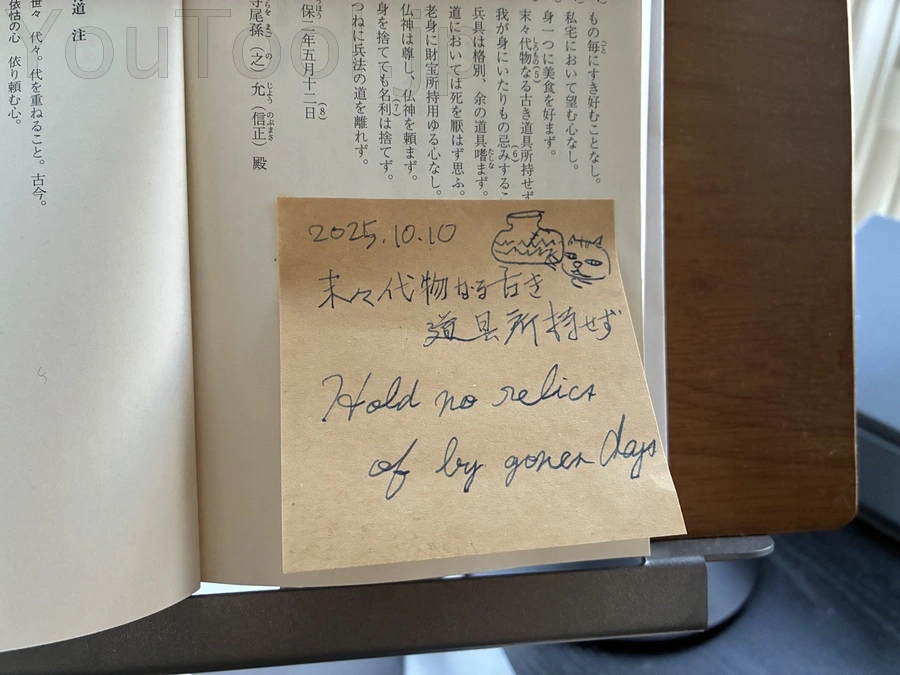 一、もの毎にすき好むことなし。
一、私宅において望む心なし。
一、身一つに美食を好まず。
末々代物なる古き道具所持せず
我が身にいたりもの忌みする
兵具は格別、余の道具嗜まず。
道においては死を厭はず思ふ。
老身に財宝所持用ゆる心なし。
仏神は尊し、仏神を頼まず。
身を捨てても名利は捨てず。
つねに兵法の道を離れず。
保二年五月十二日
寺尾孫(之)允(信正)殿
道 注
世々 代々。代を重ねること。古今。
依怙の心 依り頼む心。
2025.10.10
末々代物なる古き
道具所持せず
Hold no relics
of by gones days
YouToo